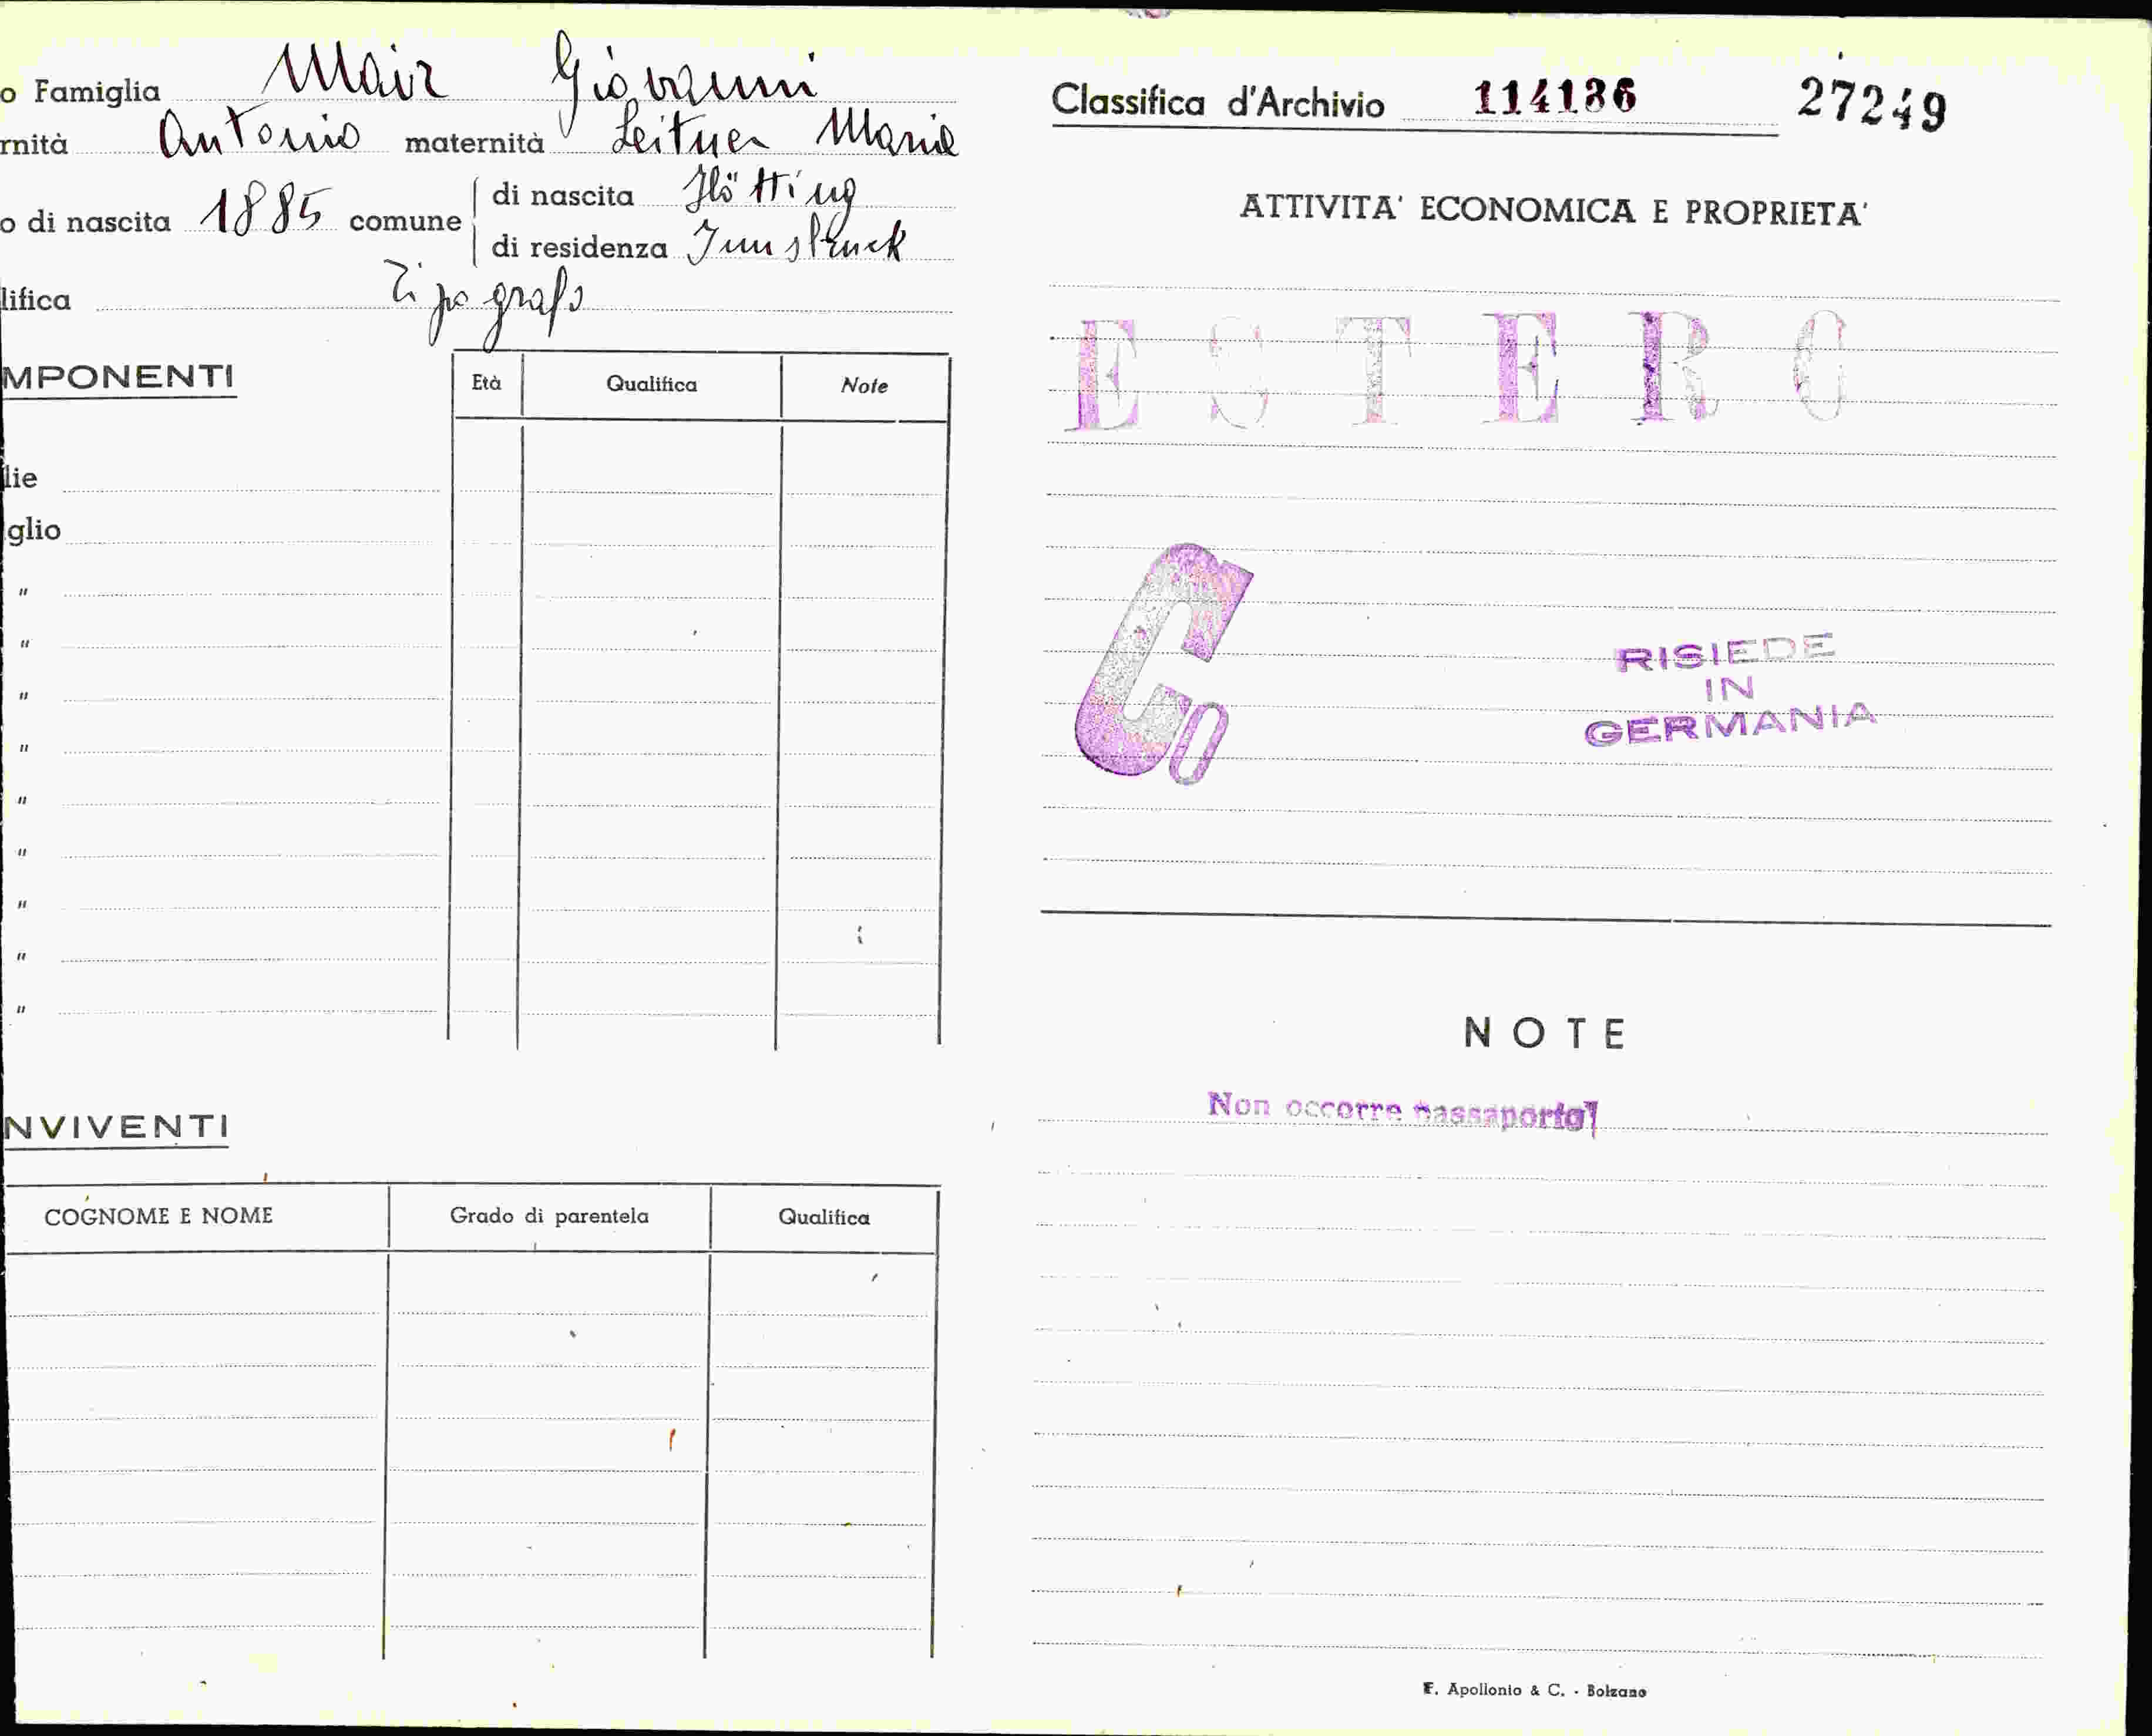 o Famiglia Mair Giovanni
rnità Antonio maternità Leitner Maria
o di nascita 1885 comune di nascita Hötting
di residenza Innsbruck
lifica Tipografo
MPONENTI
Età Qualifica Note
lie
glio
"
"
"
"
"
"
"
"
"
NVIVENTI
COGNOME E NOME Grado di parentela Qualifica
Classifica d'Archivio 114136 27249
ATTIVITA' ECONOMICA E PROPRIETA'
ESTERO
Co
RISIEDE
IN
GERMANIA
NOTE
Non occorre passaporto
F. Apollonio & C. - Bolzano